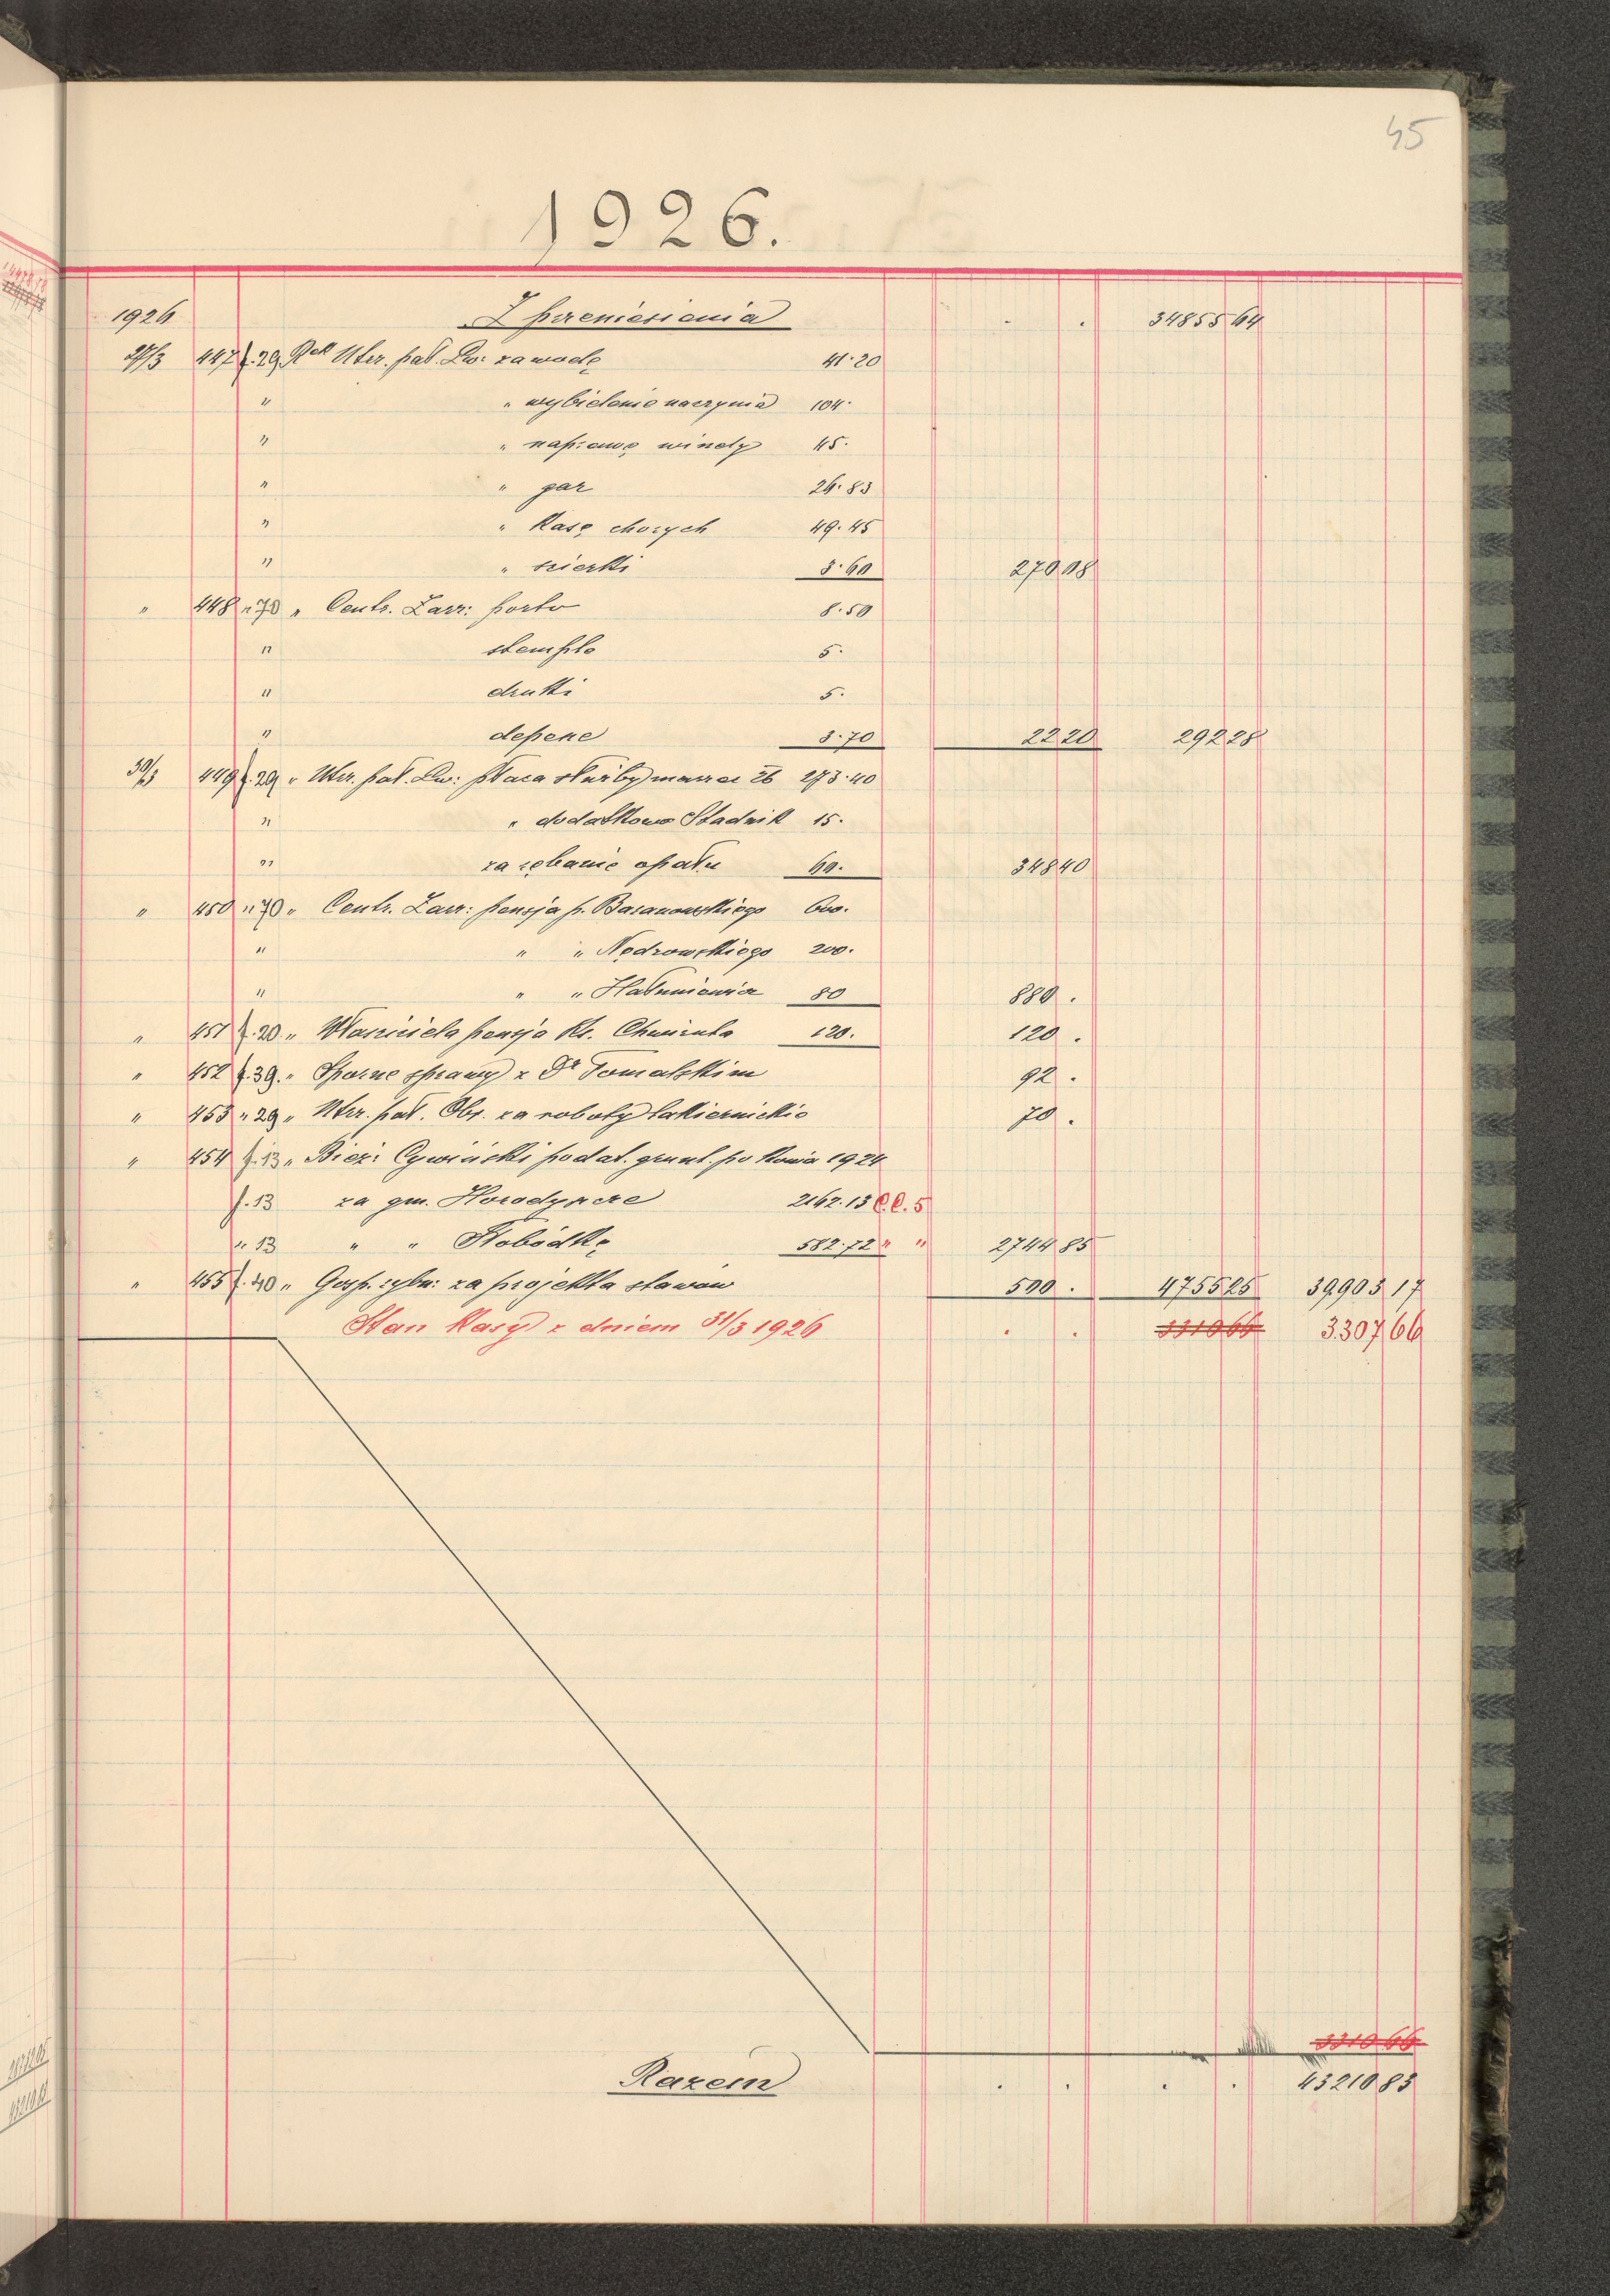 45
1926.
1926 Z przeniesienia . . 34855 64
27/3 447 f. 29 Rek Utrz. pał. Lw: za wodę 41·20
" " wybielenie naczynia 104·
" " naprawę windy 45·
" " gaz 26·83
" " Kasę chorych 49·45
" " ścierki 3·60 270 08
" 448 " 70 " Centr. Zarz: porto 8·50
" stemple 5·
" druki 5·
" depesze 3·70 22 20 292 28
30/3 449 f. 29 " Utrz. pał. Lw: płaca służby marzec 26 273·40
" " dodatkowo Stadnik 15·
" za rębanie opału 60· 348 40
" 450 " 70 " Centr. Zarz: pensja p. Basanowskiego 600·
" " " Nędzowskiego 200·
" " " Hałuniewicz 80 880 .
" 451 f. 20 " Właściciela pensja Ks. Chmurala 120· 120 .
" 452 f. 39. " Sporne sprawy z Dr Tomalskim 92 .
" 453 " 29 " Utrz. pał. Obr. za roboty lakiernickie 70 .
" 454 f. 13 " Bież: Cywiński podat. grunt. po konia 1924
f. 13 za gm. Horodyszcze 2162·13 C.C. 5
" 13 " " Słobódkę 582·72 " " 2744 85
" 455 f. 40 " Gosp. rybn: za projekta stawów 500 . 4755 25 39903 17
Stan Kasy z dniem 31/3 1926 . . 3310 66 3.307 66
3310 66
Razem . . . . 43210 83